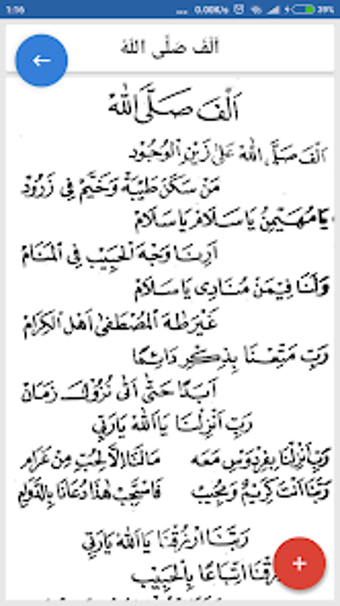 1:16
... 0.00K/s 39%
اَلْفَ صَلَّى اللهُ
اَلْفَ صَلَّى اللهُ
اَلْفَ صَلَّى اللهْ عَلَى زَيْنِ الْوُجُوْدِ
مَنْ سَكَنْ طَيْبَةْ وَخَيَّمْ فِي زَرُوْدْ
يَا مُهَيْمِنُ يَا سَلَامْ يَا سَلَامْ
اَرِنَا وَجْهَ الْحَبِيْبْ فِي الْمَنَامْ
وَلَنَا فِيْمَنْ مُنَادِى يَا سَلَامْ
غَيْرَ طٰهَ الْمُصْطَفٰى اَهْلِ الْكِرَامْ
رَبِّ مَتِّعْنَا بِذِكْرٍ دَائِمًا
اَبَدًا حَتَّى اَتٰى نُزُوْلُكَ زَمَانْ
رَبِّ اَنْزِلْنَا يَا اَللهْ يَارَبِّي
رَبِّ اَنْزِلْنَا بِفِرْدَوْسٍ مَعَهْ مَالَنَا اِلَّا لِحُبٍّ مِنْ غَرَامِ
رَبَّنَا اَنْتَ كَرِيْمٌ وَمُجِيْبْ فَاسْتَجِبْ هٰذَا دُعَانَا بِالدَّوَامِ
رَبَّنَا ارْزُقْنَا يَا اَللهْ يَارَبِّي
اتِّبَاعًا بِالْحَبِيْبْ